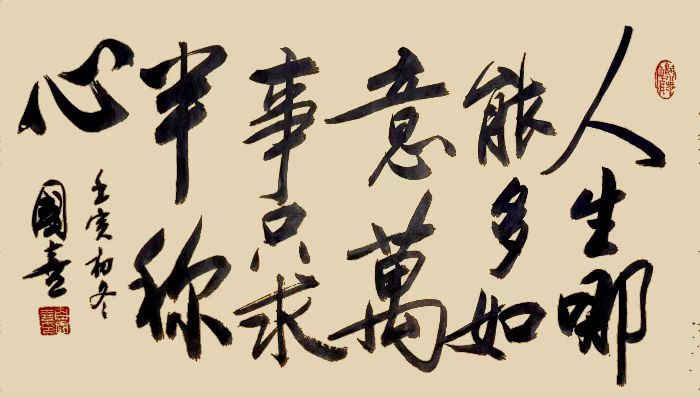 人生哪
能多如
意萬
事只求
半称
心
壬寅初冬
國喜